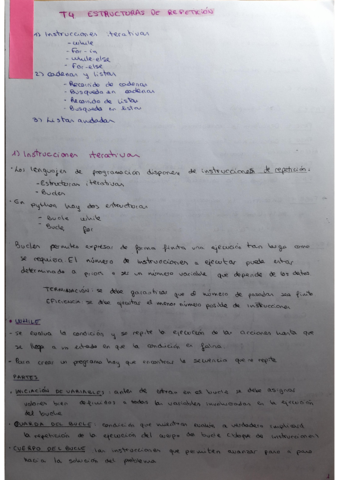 T4 ESTRUCTURAS DE REPETICIÓN
1) Instrucciones iterativas
- while
- For-in
- while-else
- For-else
2) Cadenas y Listas
- Recorrido de cadenas
- Busqueda en cadenas
- Recorrido de Listas
- Busqueda en Listas
3) Listas anidadas
1) Instrucciones iterativas
- Los lenguajes de programación disponen de instrucciones de repetición:
- Estructuras iterativas
- Bucles
- En python hay dos estructuras
- Bucle while
- Bucle for
Bucles permiten expresar de forma finita una ejecución tan larga como
se requiera El número de instrucciones a ejecutar puede estar
determinado a priori o ser un número variable que depende de los datos
TERMINACIÓN: se debe garantizar que el número de pasadas sea finito
EFICIENCIA se debe ejecutar el menor número posible de instrucciones
WHILE
- Se evalua la condición y se repite la ejecución de las acciones hasta que
se llega a un estado en que la condición es falsa
- Para crear un programa hay que encontrar la secuencia que se repite
PARTES
- INICIACIÓN DE VARIABLES: antes de entrar en el bucle se debe asignar
valores bien definidos a todas las variables involucradas en la ejecución
del bucle
- GUARDA DEL BUCLE: condición que mientras evalúe a verdadero implicará
la repetición de la ejecución del cuerpo del bucle (bloque de instrucciones)
- CUERPO DEL BUCLE las instrucciones que permiten avanzar paso a paso
hacia la solución del problema